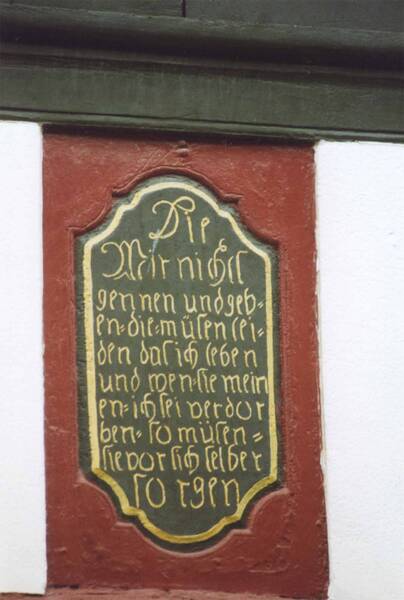 Die
Mir nichts
gennen und geb=
en=die=müsen lei=
den das ich leben
und wen=sie mein
en=ich sei verdor
ben=so müsen=
sie vor sich selber
sorgen